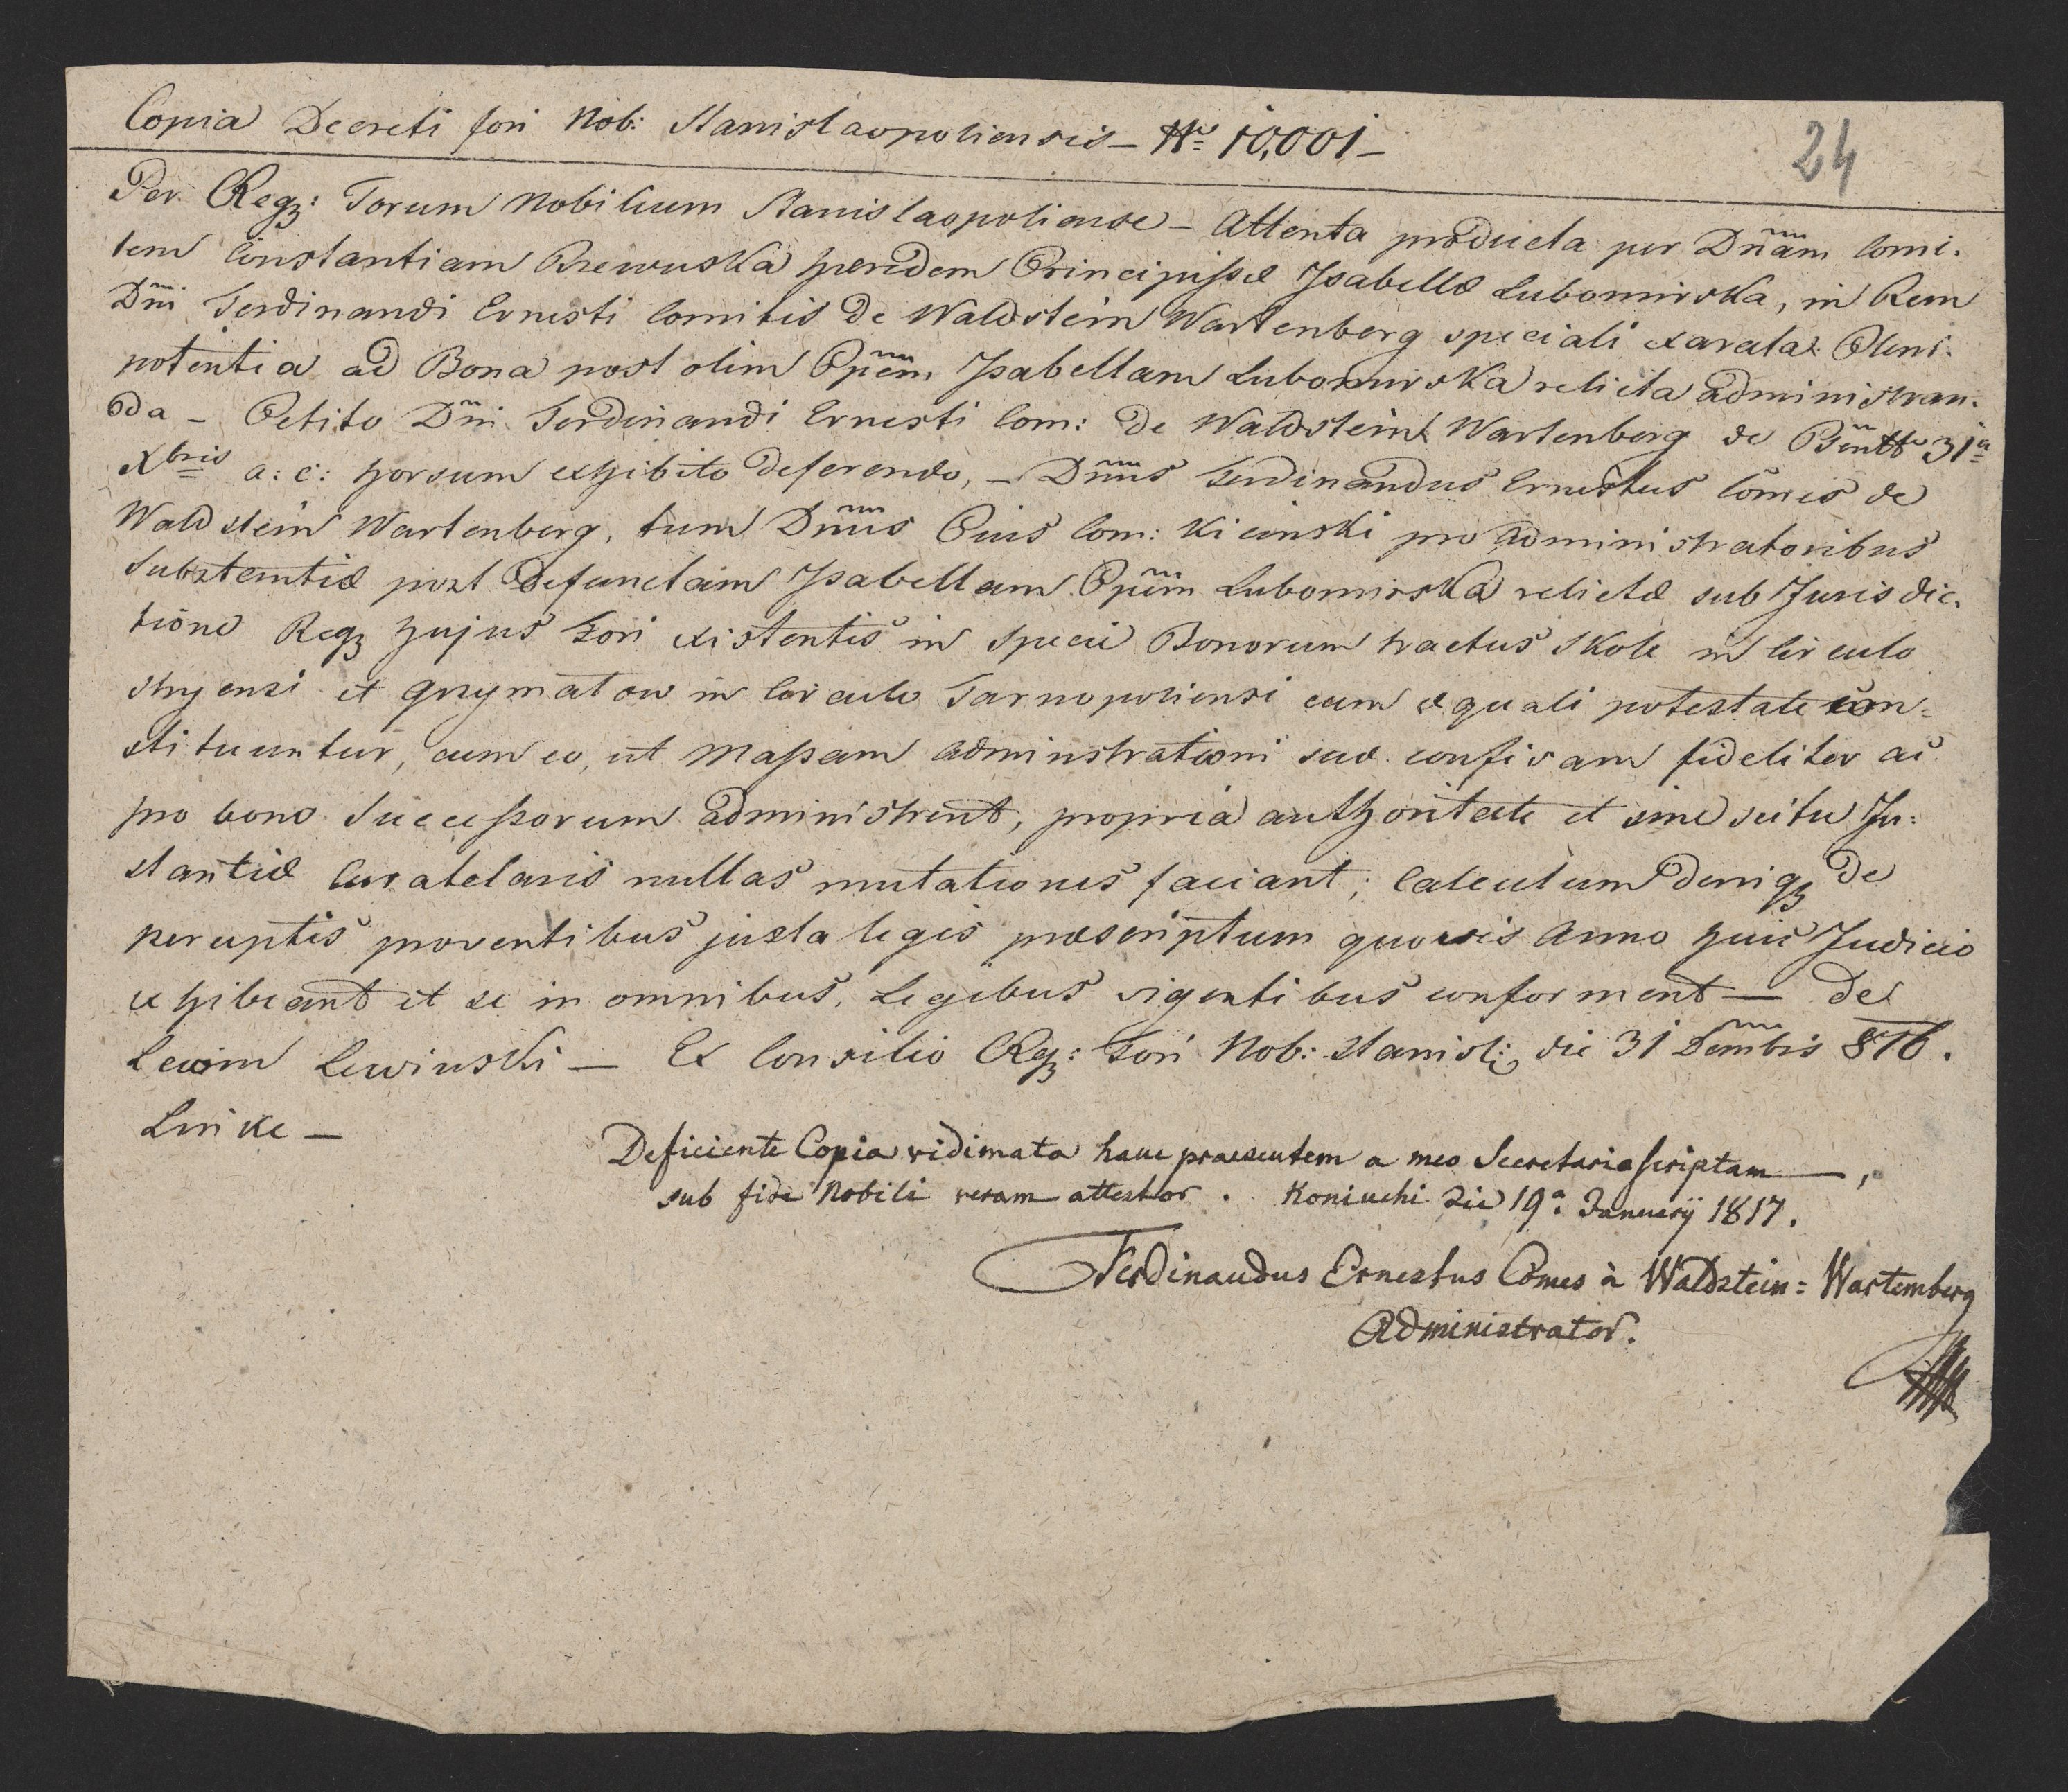 Copia Decreti fori Nob: Stanislaopoliensis – Nro 10,001 –
24
Per Regz: Forum Nobilium Stanislaopoliense – Attenta producta per Dnam Comi-
tem Constantiam Rzewuska heredem Principissæ Isabellæ Lubomirska, in Rem
Dni Ferdinandi Ernesti Comitis de Waldstein Wartenberg speciali exarata Pleni-
potentia ad Bona post olim Ppem Isabellam Lubomirska relicta administran-
da – Petito Dni Ferdinandi Ernesti Com: de Waldstein Wartenberg de 31a
Xbris a: c: horsum exhibito deferendo, – Dnus Ferdinandus Ernestus Comes de
Waldstein Wartenberg, tum Dnus Pius Com: Kicinski pro administratoribus
Substantiæ post defunctam Isabellam Ppem Lubomirska relictæ sub Jurisdic-
tione Regz hujus Fori existentis in specie Bonorum tractus Skole in Circulo
Stryensi et Grzymałow in Circulo Tarnopoliensi cum æquali potestate con=
stituuntur, cum eo, ut Massam administrationi suæ confisam fideliter ac
pro bono Successorum administrent, propria authoritate et sine scitu In:
stantiæ Curatelaris nullas mutationes faciant; Calculum deniqz de
perceptis proventibus juxta legis præscriptum quovis Anno huic Judicio
exhibeant et se in omnibus Legibus vigentibus conforment – de
Lewin Lewinski – Ex Consilio Rgz: Fori Nob: Stanisl: die 31 Dembris 816.
Linke –
Deficiente Copia vidimata hanc praesentem a meo Secretario scriptam –,
sub fide Nobili veram attestor. Koniuchi die 19a Januarÿ 1817.
Ferdinandus Ernestus Comes à Waldstein=Wartemberg
Administrator.